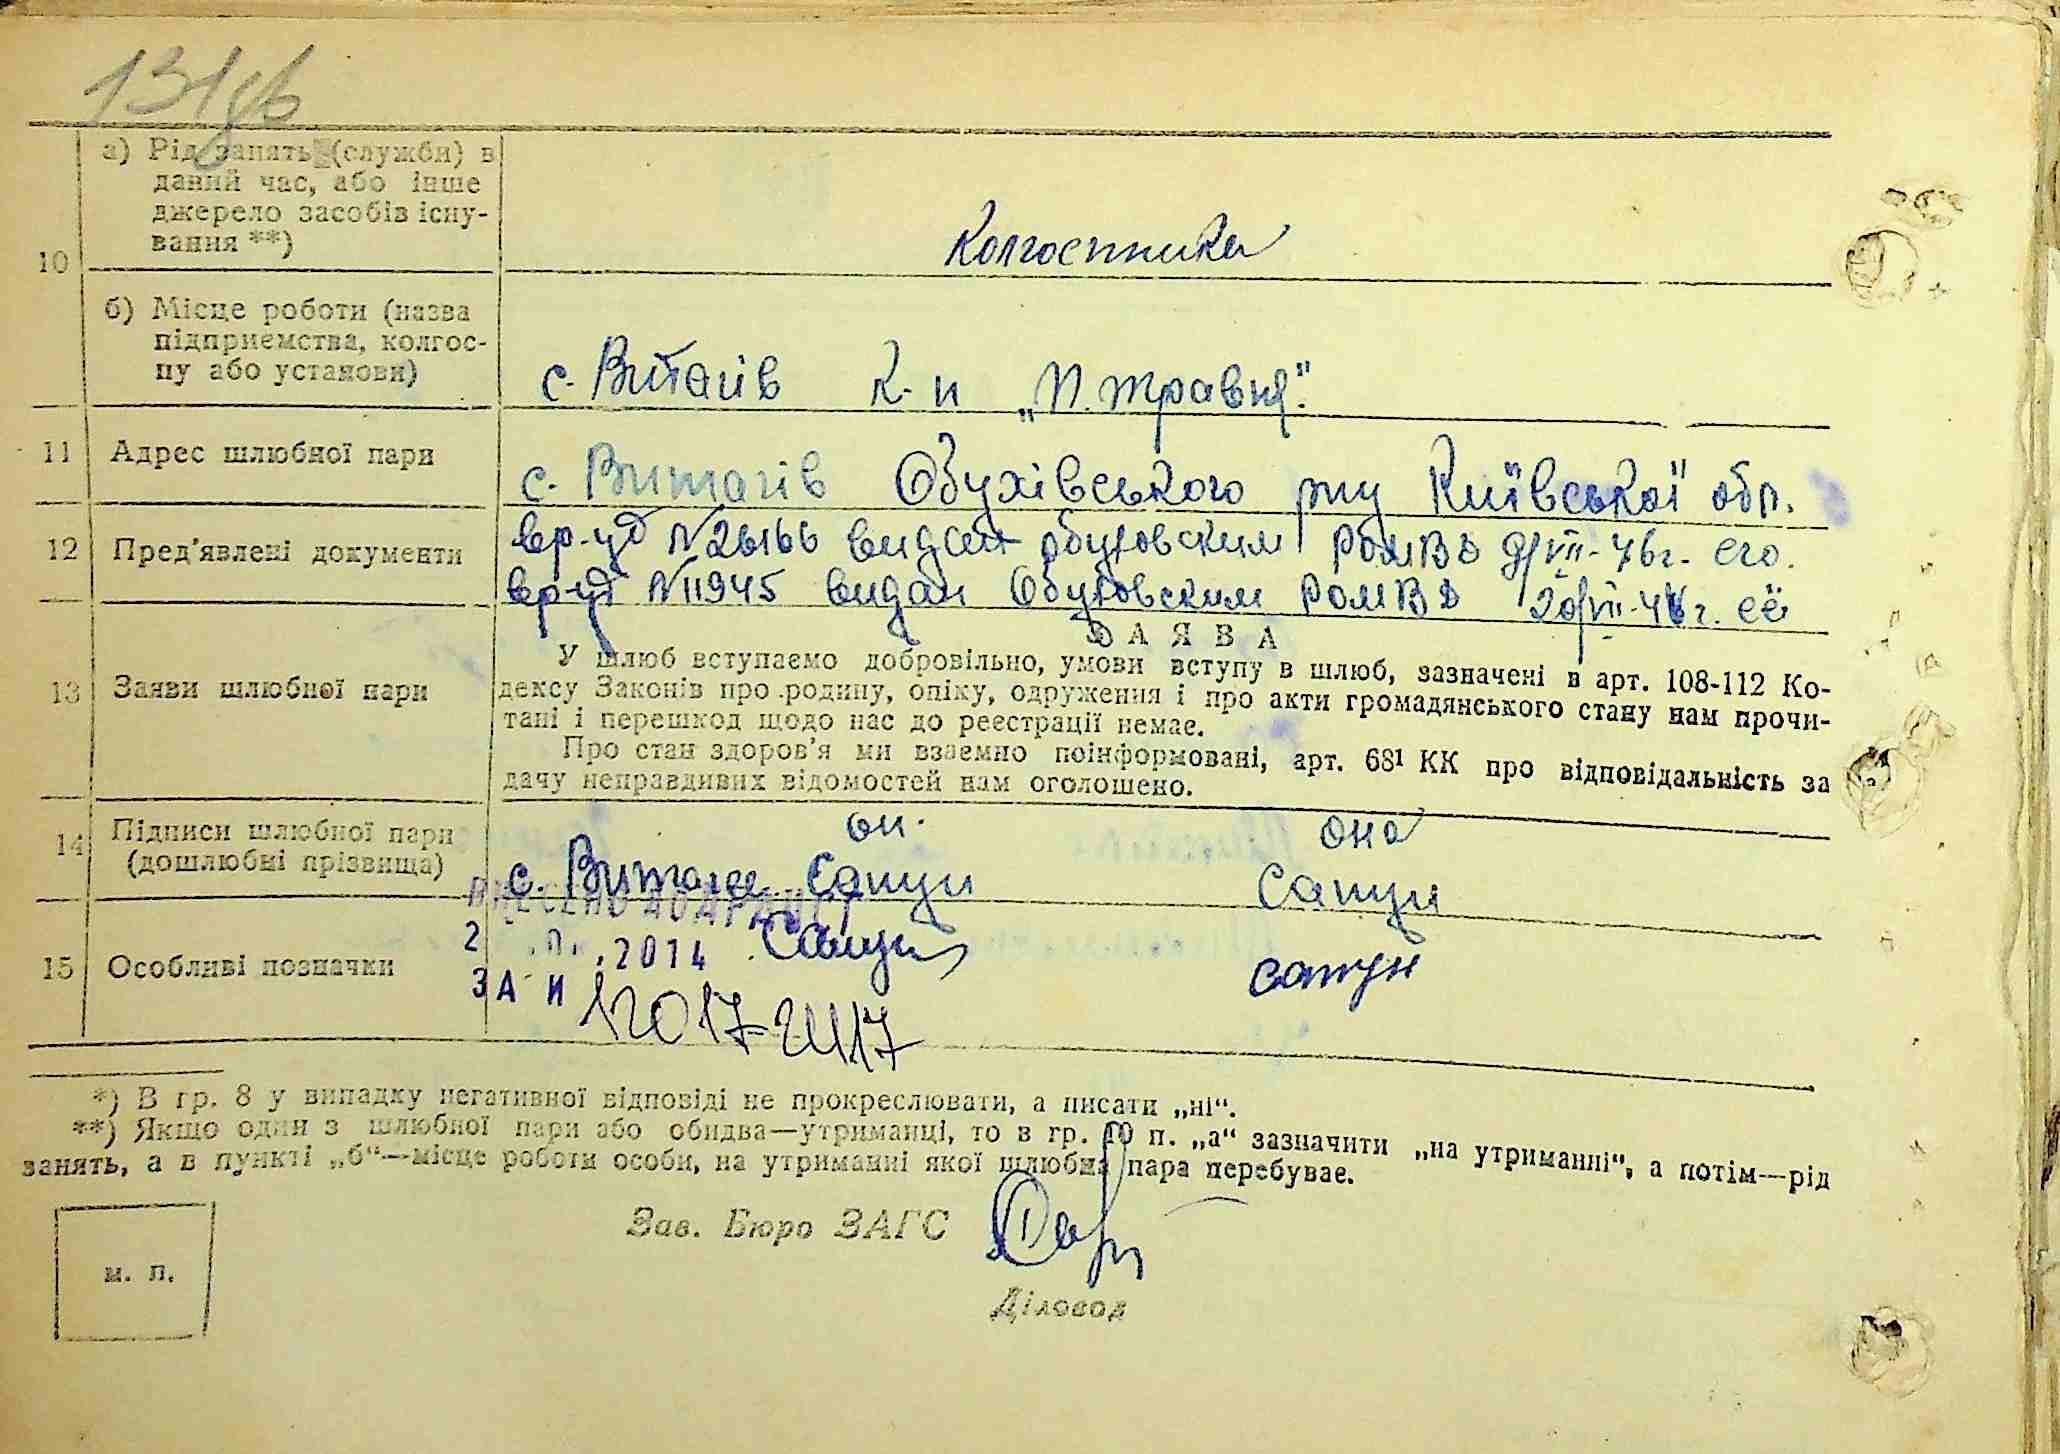 131
а) Рід занять (служби) в
даний час, або інше
джерело засобів існу-
вання **)
Колгоспники
10
б) Місце роботи (назва
підприємства, колгос-
пу або установи)
с. Витачів к-п „П. травня".
11 Адрес шлюбної пари
с. Витачів Обухівського р-ну Київської обл.
12 Пред'явлені документи
вр-уд №26166 видан обуховским РОМВД 9/VII-46г. его.
вр-уд №11945 видан Обуховским РОМВД 20/VII-46г. её
ЗАЯВА
13 Заяви шлюбної пари
У шлюб вступаємо добровільно, умови вступу в шлюб, зазначені в арт. 108-112 Ко-
дексу Законів про родину, опіку, одруження і про акти громадянського стану нам прочи-
тані і перешкод щодо нас до реєстрації немає.
Про стан здоров'я ми взаємно поінформовані, арт. 68¹ КК про відповідальність за
дачу неправдивих відомостей нам оголошено.
14 Підписи шлюбної пари
(дошлюбні прізвища)
он. она
с. Сапун Сапун
ВНЕСЕНО ДО ДРАЦСГ
15 Особливі позначки
2 .2014 Сапун сапун
ЗА №
*) В гр. 8 у випадку негативної відповіді не прокреслювати, а писати „ні“.
**) Якщо один з шлюбної пари або обидва—утриманці, то в гр. 10 п. „а“ зазначити „на утриманні“, а потім—рід
занять, а в пункті „б“—місце роботи особи, на утриманні якої шлюбна пара перебуває.
Зав. Бюро ЗАГС
м. п.
Діловод